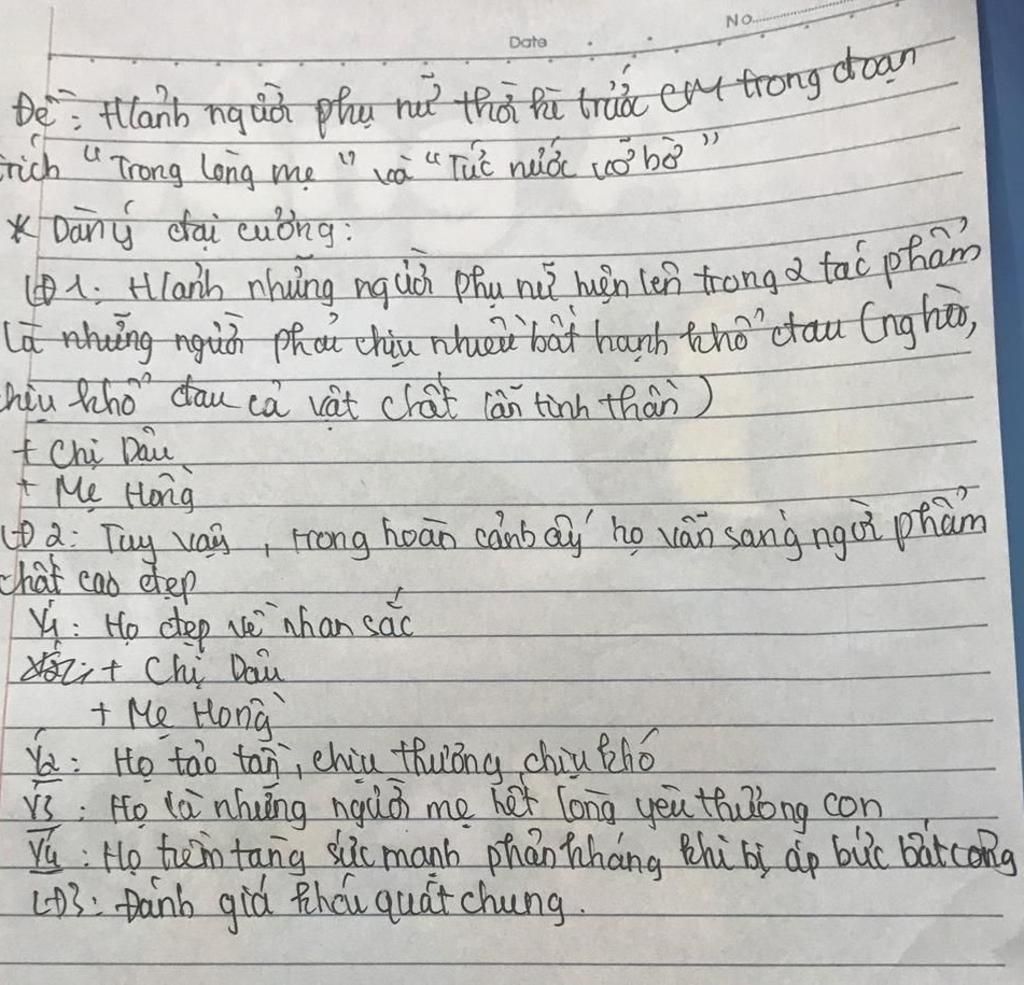 No.
Date
Đề: H/ảnh người phụ nữ thời kì trước CM trong đoạn
trích "Trong lòng mẹ" và "Tức nước vỡ bờ"
* Dàn ý đại cương:
LĐ 1: H/ảnh những người phụ nữ hiện lên trong 2 tác phẩm
là những người phải chịu nhiều bất hạnh khổ đau (nghèo,
chịu khổ đau cả vật chất lẫn tinh thần)
+ Chị Dậu
+ Mẹ Hồng
LĐ 2: Tuy vậy, trong hoàn cảnh ấy họ vẫn sáng ngời phẩm
chất cao đẹp
Ý1: Họ đẹp về nhan sắc
+ Chị Dậu
+ Mẹ Hồng
Ý2: Họ tảo tần, chịu thương chịu khó
Ý3: Họ là những người mẹ hết lòng yêu thương con
Ý4: Họ tiềm tàng sức mạnh phản kháng khi bị áp bức bất công
LĐ3: Đánh giá khái quát chung.